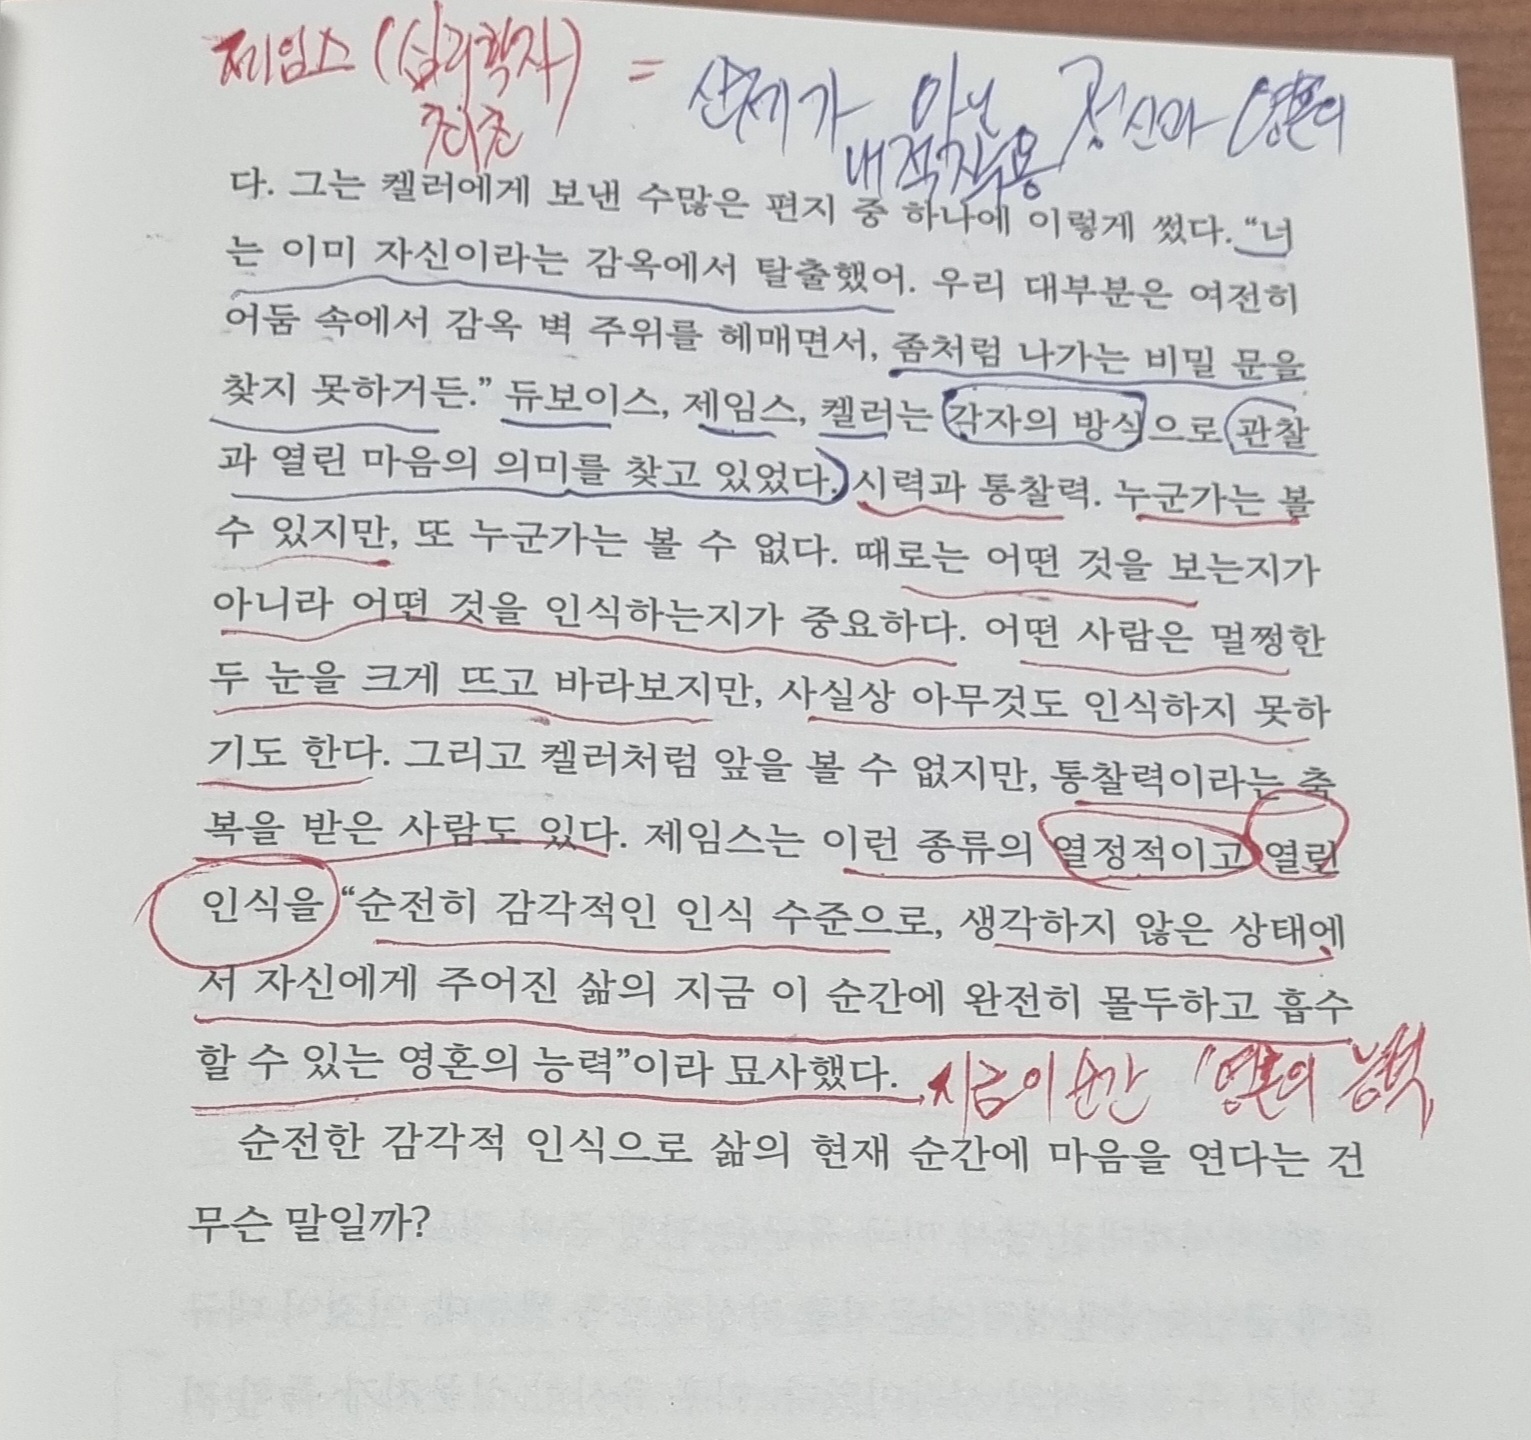 제임스 (심리학자) = 신체가 아닌 정신과 영혼의
최초 내적작용
다. 그는 켈러에게 보낸 수많은 편지 중 하나에 이렇게 썼다. “너
는 이미 자신이라는 감옥에서 탈출했어. 우리 대부분은 여전히
어둠 속에서 감옥 벽 주위를 헤매면서, 좀처럼 나가는 비밀 문을
찾지 못하거든.” 듀보이스, 제임스, 켈러는 각자의 방식으로 관찰
과 열린 마음의 의미를 찾고 있었다. 시력과 통찰력. 누군가는 볼
수 있지만, 또 누군가는 볼 수 없다. 때로는 어떤 것을 보는지가
아니라 어떤 것을 인식하는지가 중요하다. 어떤 사람은 멀쩡한
두 눈을 크게 뜨고 바라보지만, 사실상 아무것도 인식하지 못하
기도 한다. 그리고 켈러처럼 앞을 볼 수 없지만, 통찰력이라는 축
복을 받은 사람도 있다. 제임스는 이런 종류의 열정적이고 열린
인식을 “순전히 감각적인 인식 수준으로, 생각하지 않은 상태에
서 자신에게 주어진 삶의 지금 이 순간에 완전히 몰두하고 흡수
할 수 있는 영혼의 능력”이라 묘사했다. 지금 이 순간 영혼의 능력
순전한 감각적 인식으로 삶의 현재 순간에 마음을 연다는 건
무슨 말일까?